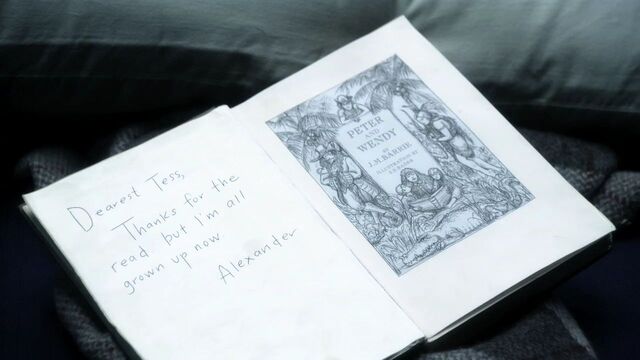 Dearest Tess,
Thanks for the
read but I'm all
grown up now
Alexander
PETER
AND
WENDY
BY
J.M.BARRIE
ILLUSTRATED BY